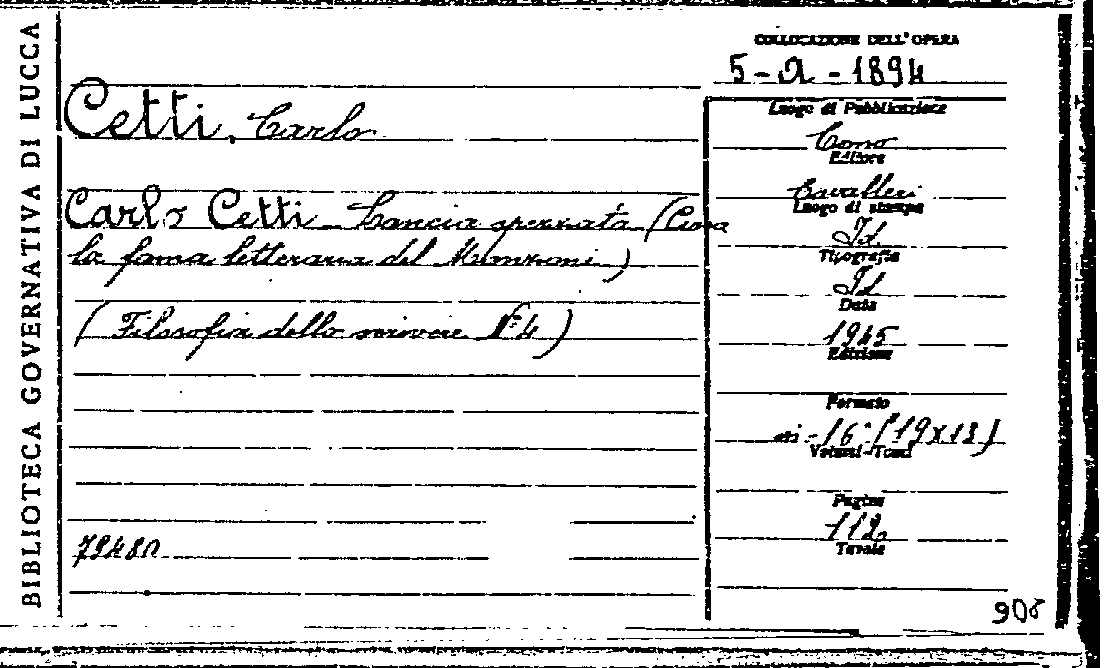 BIBLIOTECA GOVERNATIVA DI LUCCA
COLLOCAZIONE DELL'OPERA
5-a-1894
Cetti, Carlo
Luogo di Pubblicazione
Como
Editore
Cavalleri
Luogo di stampa
Id.
Tipografia
Id
Data
1945
Edizione
Formato
in-16°(19x13)
Volumi-Tomi
Pagine
112.
Tavole
Carlo Cetti - Lancia spezzata (Circa
la fama letteraria del Manzoni)
(Filosofia dello scrivere N° 4)
79480
908